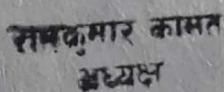 रामकुमार कामत
अध्यक्ष